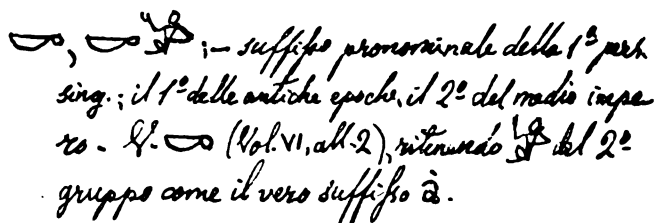 𓎟, 𓎟𓀁 :– suffisso pronominale della 1ª pers.
sing.; il 1º delle antiche epoche, il 2º del medio impe
ro – V. 𓎟 (Vol. VI, all. 2), ritenendo del 2º
gruppo come il vero suffisso à.